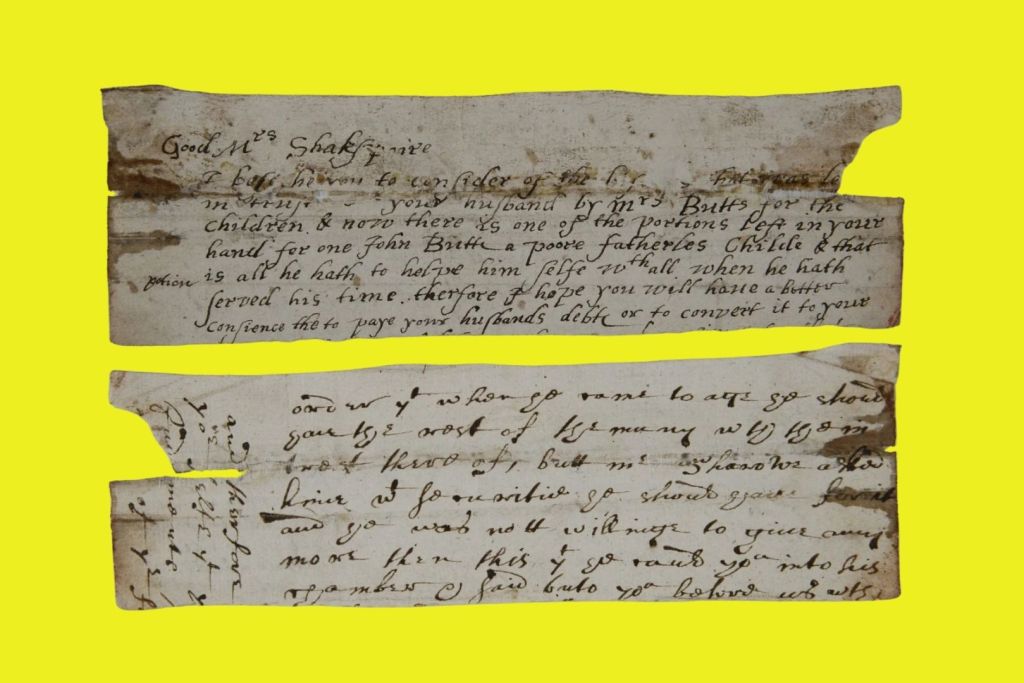 Good Mrs Shakspaire
I to consider of the that was le
in trust your husband by Mrs Butts for the
children & now there is one of the portions left in your
hand for one John Butte a poore fatherles Childe & that
is all he hath to helpe him selfe wth all when he hath
served his time. therfore I hope you will have a better
Consience the to paye your husbands debte or to convert it to your
order yt when he came to age he should
have the rest of the muny wth the in
trest there of, butt mr
hime wt securitie he should have for it
and he was nott willinge to give any
more then this yt he you into his
chamber & said unto you before us wth
and therfore